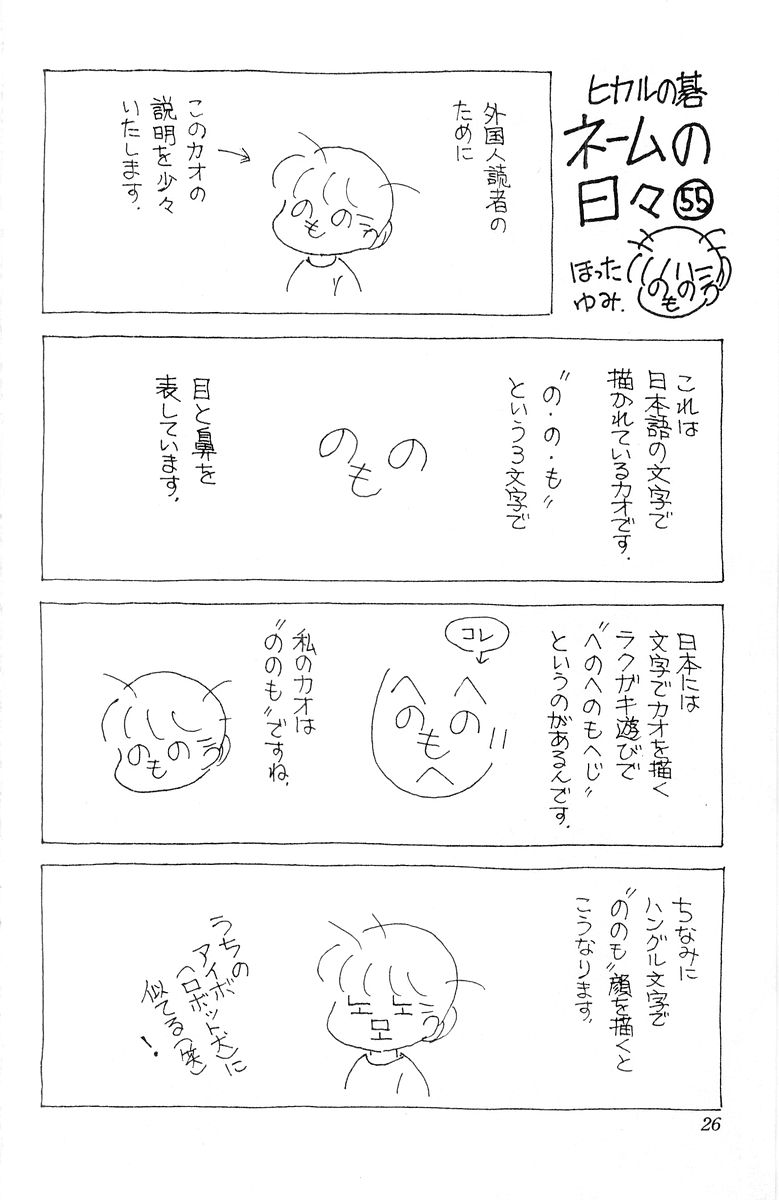 ヒカルの碁
ネームの
日々 55
ほった
ゆみ.
のの
も
外国人読者の
ために
このカオの
説明を少々
いたします.
のの
も
これは
日本語の文字で
描かれているカオです.
"の・の・も"
という3文字で
のの
も
目と鼻を
表しています.
日本には
文字でカオを描く
ラクガキ遊びで
"へのへのもへじ"
というのがあるんです.
コレ
へへ
のの
も
へ
私のカオは
"ののも"ですね.
のの
も
ちなみに
ハングル文字で
"ののも"顔を描くと
こうなります.
노노
모
うちの
アイボ
(ロボット犬)に
似てる(笑)
!
26